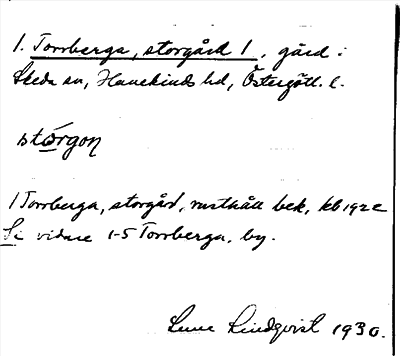 1. Torrberga, storgård 1, gård i
Skeda sn, Hanekinds hd, Östergötl. l.
stǫ́rgon
1 Torrberga, storgård, rusthåll bek, kb 1922
Se vidare 1-5 Torrberga, by.
Sune Lindqvist 1930.